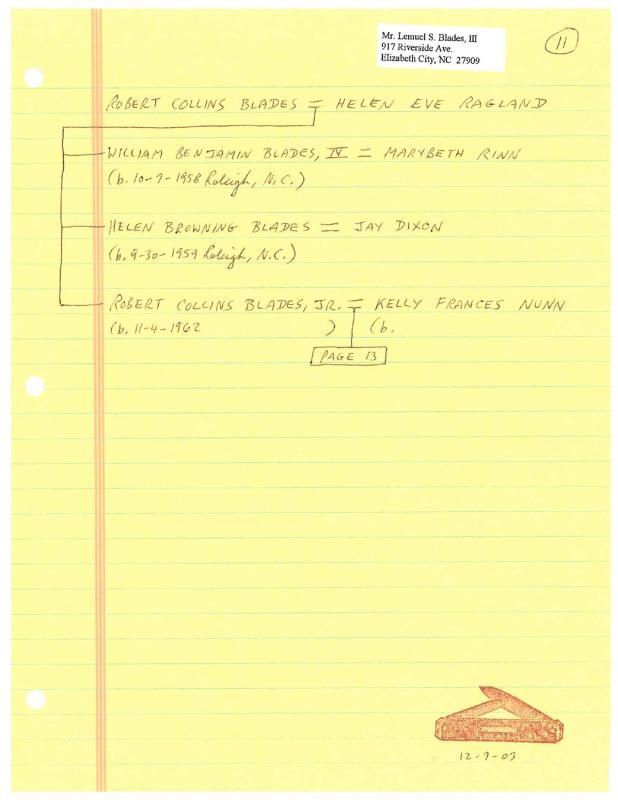 Mr. Lemuel S. Blades, III
917 Riverside Ave.
Elizabeth City, NC 27909
11
ROBERT COLLINS BLADES = HELEN EVE RAGLAND
WILLIAM BENJAMIN BLADES, IV = MARYBETH RINN
(b. 10-7-1958 Raleigh, N.C.)
HELEN BROWNING BLADES = JAY DIXON
(b. 9-30-1959 Raleigh, N.C.)
ROBERT COLLINS BLADES, JR. = KELLY FRANCES NUNN
(b. 11-4-1962 ) (b.
PAGE 13
12-7-03